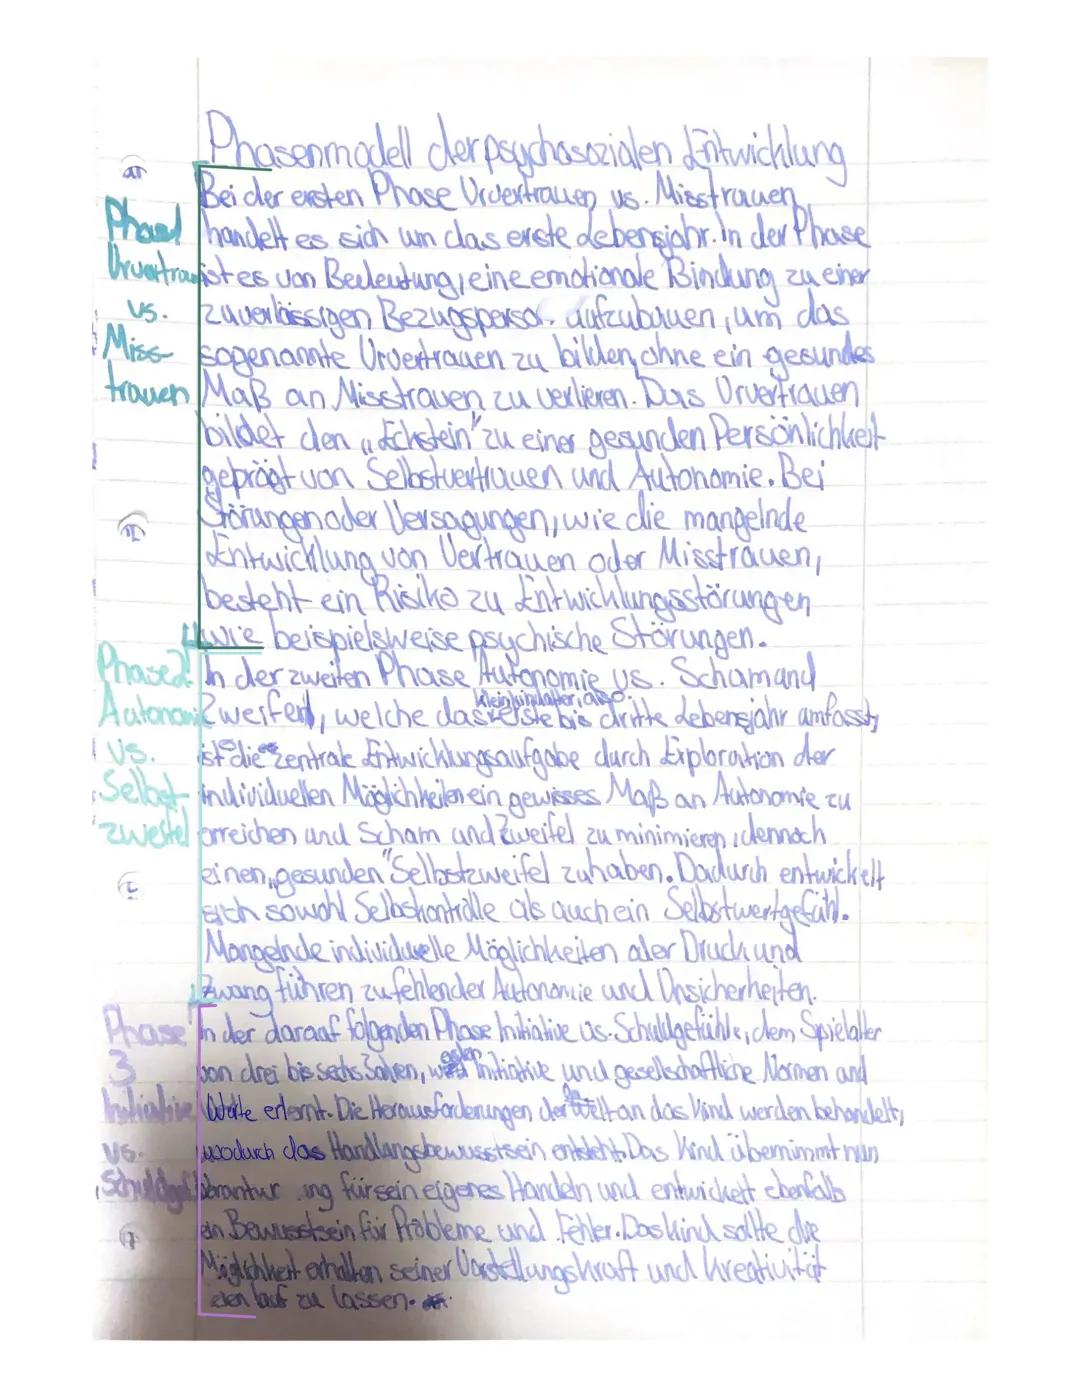 Phasenmodell der psychosozialen Entwicklung
Bei der ersten Phase Urvertrauen vs. Misstrauen
handelt es sich um das erste Lebensjahr. In der Phase
ist es von Bedeutung, eine emotionale Bindung zu einer
zuverlässigen Bezugsperso. aufzubauen, um das
sogenannte Urvertrauen zu bilden, ohne ein gesundes
Maß an Misstrauen zu verlieren. Das Urvertrauen
bildet den „Eckstein" zu einer gesunden Persönlichkeit
geprägt von Selbstvertrauen und Autonomie. Bei
Störungen oder Versagungen, wie die mangelnde
Entwicklung von Vertrauen oder Misstrauen,
besteht ein Risiko zu Entwicklungsstörungen
wie beispielsweise psychische Störungen.
In der zweiten Phase Autonomie vs. Scham und
Zweifel, welche das Kleinkindalter, also erste bis dritte Lebensjahr umfasst,
ist die zentrale Entwicklungsaufgabe durch Exploration der
individuellen Möglichkeiten ein gewisses Maß an Autonomie zu
erreichen und Scham und Zweifel zu minimieren, dennoch
einen „gesunden" Selbstzweifel zu haben. Dadurch entwickelt
sich sowohl Selbstkontrolle als auch ein Selbstwertgefühl.
Mangelnde individuelle Möglichkeiten oder Druck und
Zwang führen zu fehlender Autonomie und Unsicherheiten.
In der darauf folgenden Phase Initiative vs. Schuldgefühle, dem Spielalter
von drei bis sechs Jahren, Initiative und gesellschaftliche Normen und
Werte erlernt. Die Herausforderungen der Welt an das Kind werden behandelt,
wodurch das Handlungsbewusstsein entsteht. Das Kind übernimmt nun
für sein eigenes Handeln und entwickelt ebenfalls
ein Bewusstsein für Probleme und Fehler. Das Kind sollte die
Möglichkeit erhalten seiner Vorstellungskraft und Kreativität
lauf zu lassen.
Phase 1
Urvertrauen
vs.
Miss-
trauen
Phase 2
Autonomie
vs.
Selbst-
zweifel
Phase
3
Initiative
vs.
Schuldgef